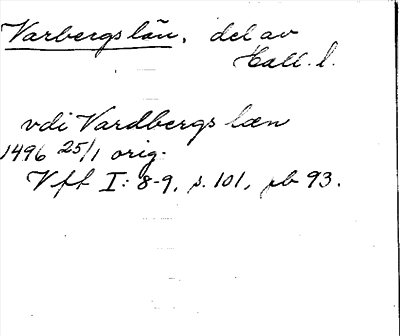 Varbergs län, del av
Hall. l.
vdi Vardbergs læn
1496 25/1 orig.
Vff I: 8-9, s. 101, pb 93.